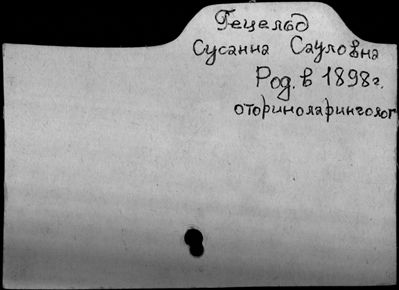 Гецельд
Сусанна Сауловна
Род. в 1898 г.
оториноларинголог